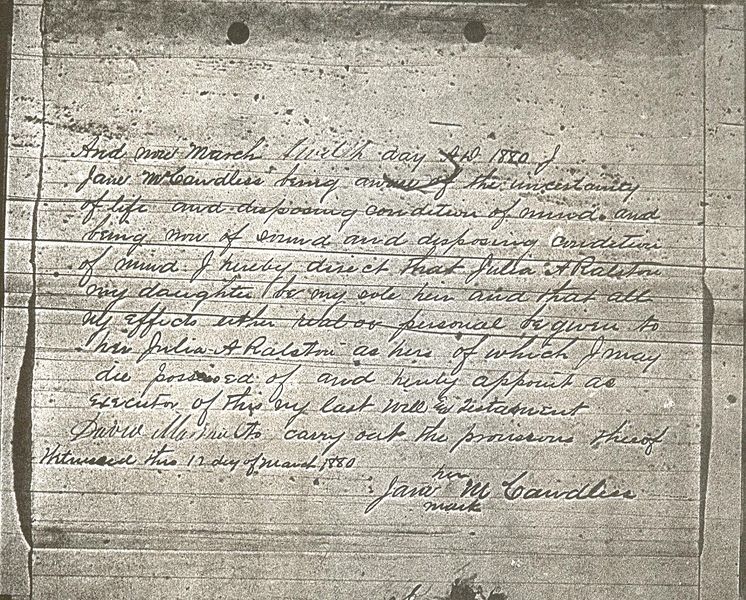 And now March day AD 1880 I
Jane McCandless being aware of the uncertainty
of life and disposing condition of mind and
being now of sound and disposing condition
of mind I hereby direct that Julia A Ralston
my daughter be my sole heir and that all
my effects either real or personal be given to
her Julia A Ralston as hers of which I may
die possessed of and hereby appoint as
executor of this my last Will & Testament
David to carry out the provisions thereof
Witnessed this 12 day of March 1880
her
Jane McCandless
mark